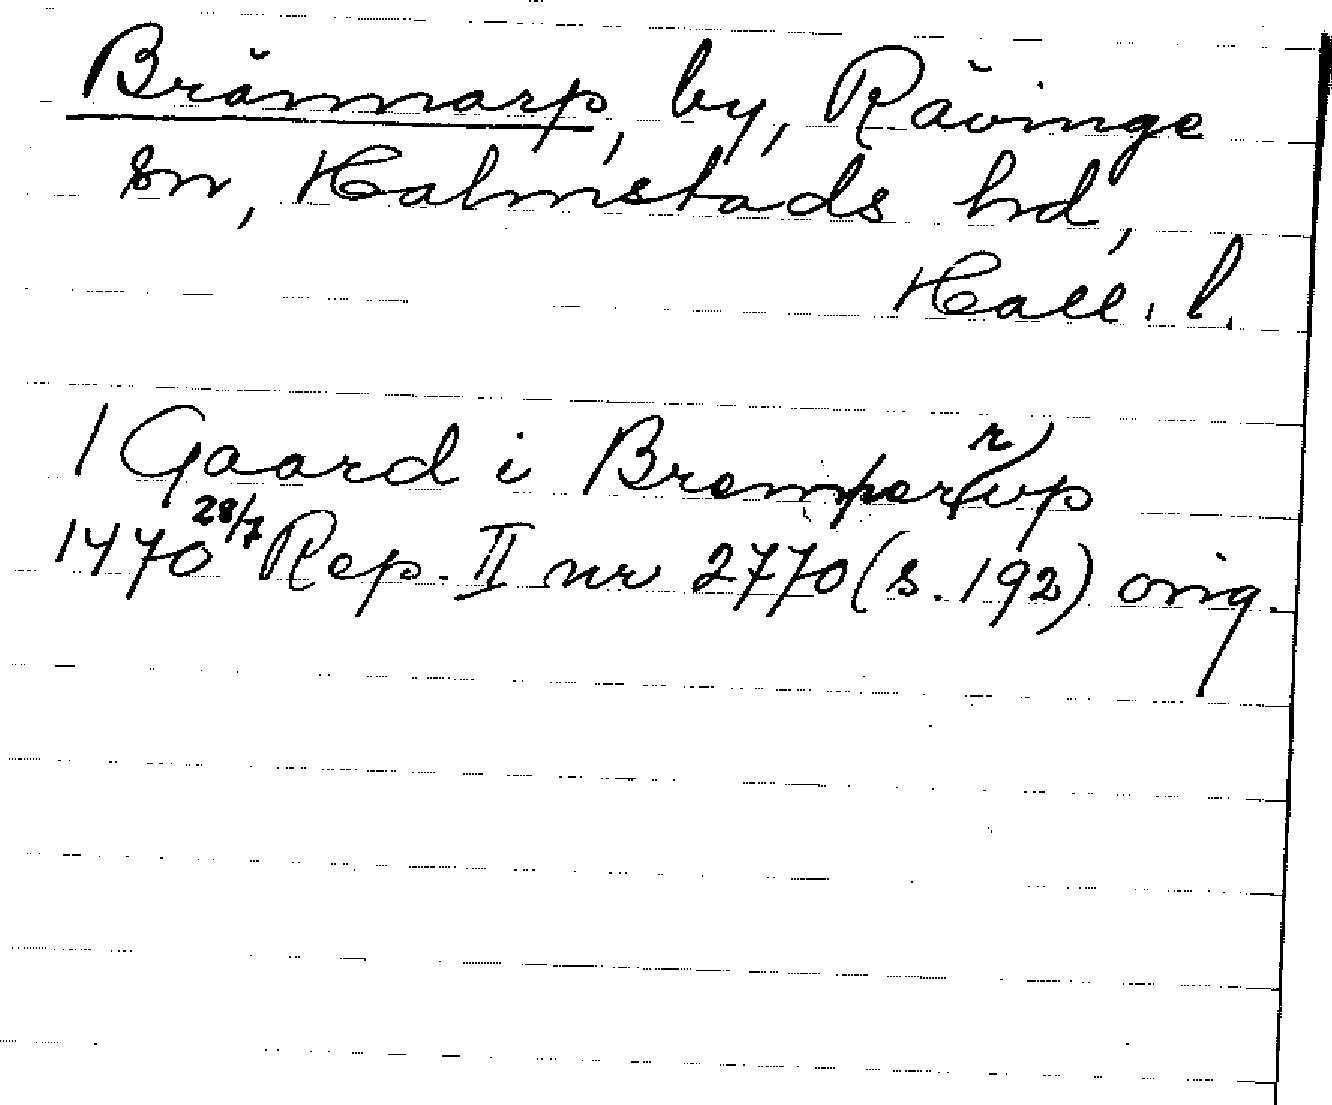 Brännarp, by, Rävinge
sn, Halmstads hd,
Hall. l.
1 Gaard i
1470 28/7 Rep. II nr 2770 (s. 192) orig.